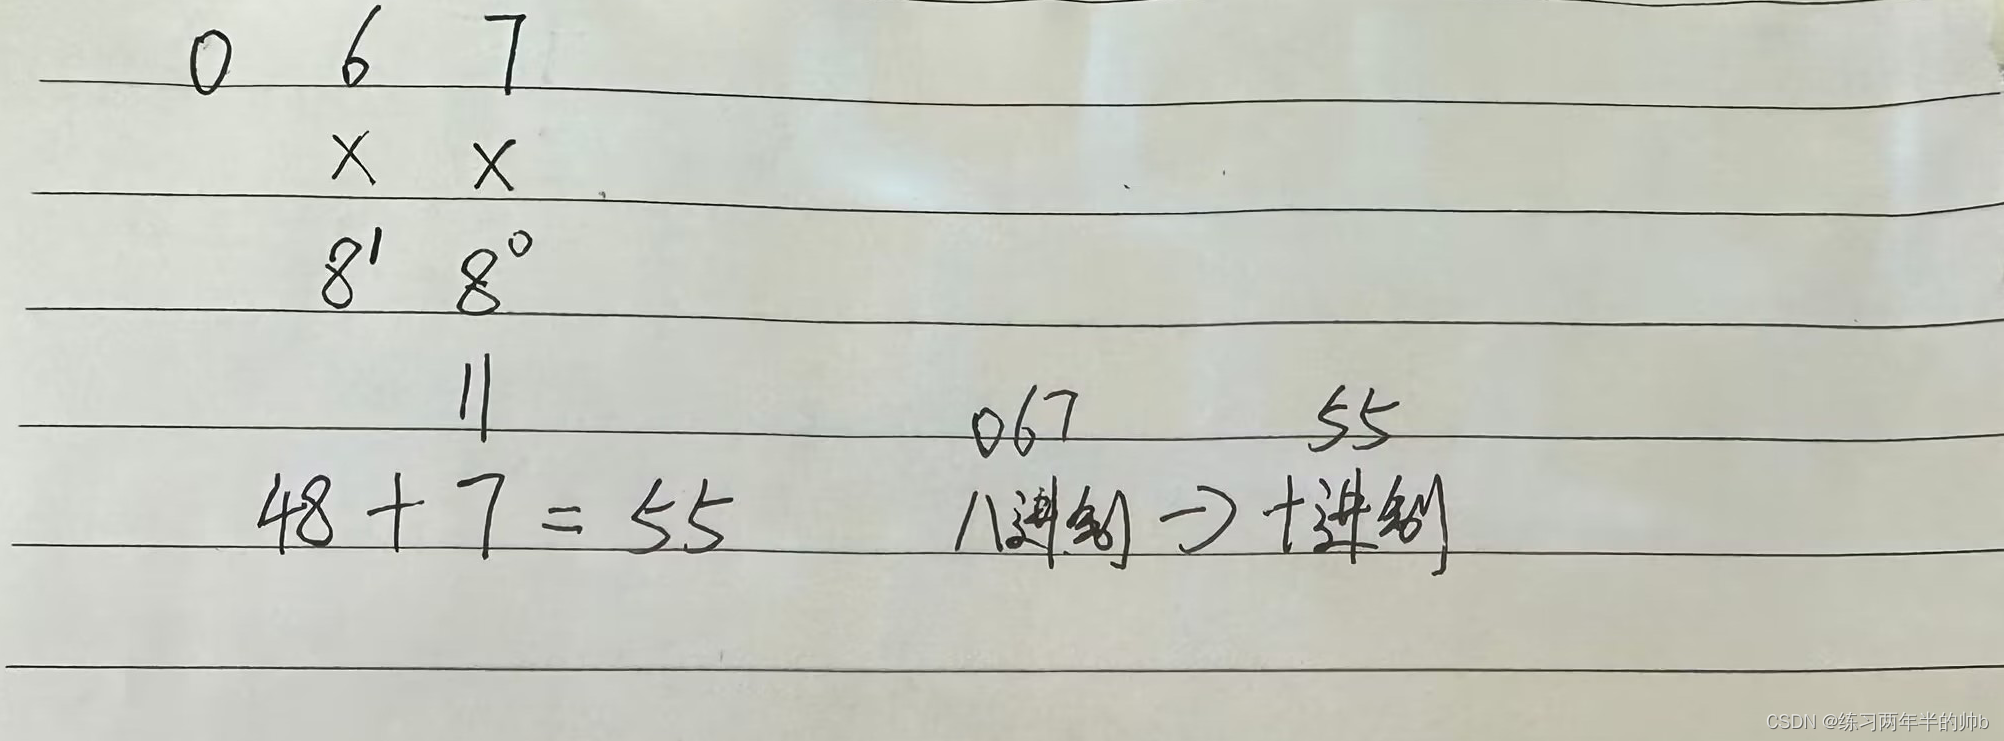 0 6 7
× ×
8¹ 8⁰
||
067 55
48 + 7 = 55 八进制 → 十进制
CSDN @练习两年半的帅b